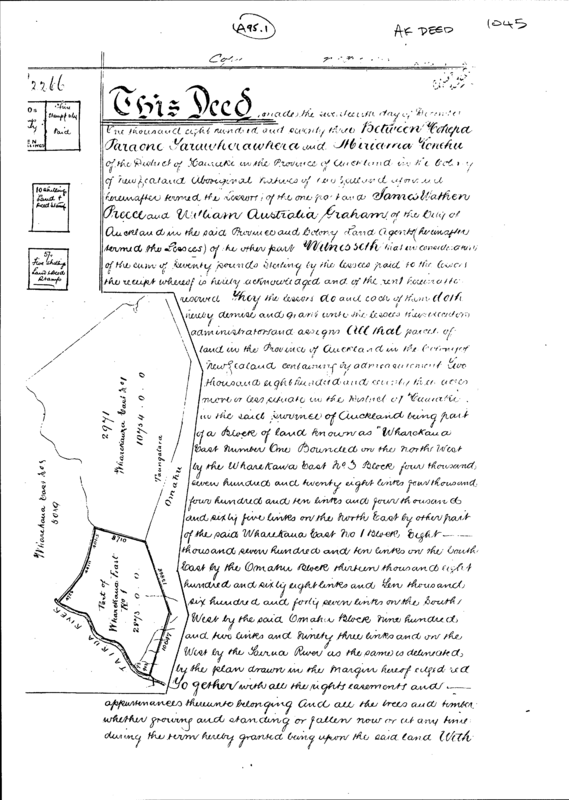 A95.1
AK DEED
1045
2266
Paid
10 shilling
Land &
Deed Stamp
5/-
Five Shilling
Land & Deed
Stamp
This Deed, made the seventeenth day of
One thousand eight hundred and seventy three Between
Taraone Tarawherawhera and Miriama
of the District of Hauraki in the Province of Auckland in the Colony
of New Zealand Aboriginal Natives of New Zealand
hereinafter termed the Lessors) of the one part and James Wathen
Preece and William Australia Graham of the City of
Auckland in the said Province and Colony Land Agents (hereinafter
termed the Lessees) of the other part Witnesseth that in consideration
of the sum of Seventy pounds Sterling by the lessees paid to the lessors
the receipt whereof is hereby acknowledged and of the rent hereinafter
reserved They the lessors do and each of them doth
hereby demise and grant unto the lessees their executors
administrators and assigns All that parcel of
land in the Province of Auckland in the Colony of
New Zealand containing by admeasurement Two
thousand eight hundred and seventy three acres
more or less situate in the District of Hauraki
in the said Province of Auckland being part
of a Block of land known as "Wharekawa
East Number One Bounded on the North West
by the Wharekawa East No 3 Block four thousand
seven hundred and twenty eight links four thousand
four hundred and ten links and four thousand
and sixty five links on the North East by other part
of the said Wharekawa East No 1 Block Eight
thousand seven hundred and ten links on the South
East by the Omahu Block thirteen thousand eight
hundred and sixty eight links and Ten thousand
six hundred and forty seven links on the South
West by the said Omahu Block Nine hundred
and two links and Ninety three links and on the
West by the Tairua River as the same is delineated
by the plan drawn in the margin hereof edged red
Together with all the rights easements and
appurtenances thereunto belonging And all the trees and timber
whether growing and standing or fallen now or at any time
during the term hereby granted being upon the said land With
2971
Wharekawa East No 1
10754 . 0 . 0
Omahu
Wharekawa East No 3
8710
Part of
Wharekawa East
No 1
2873 . 0 . 0
TAIRUA RIVER